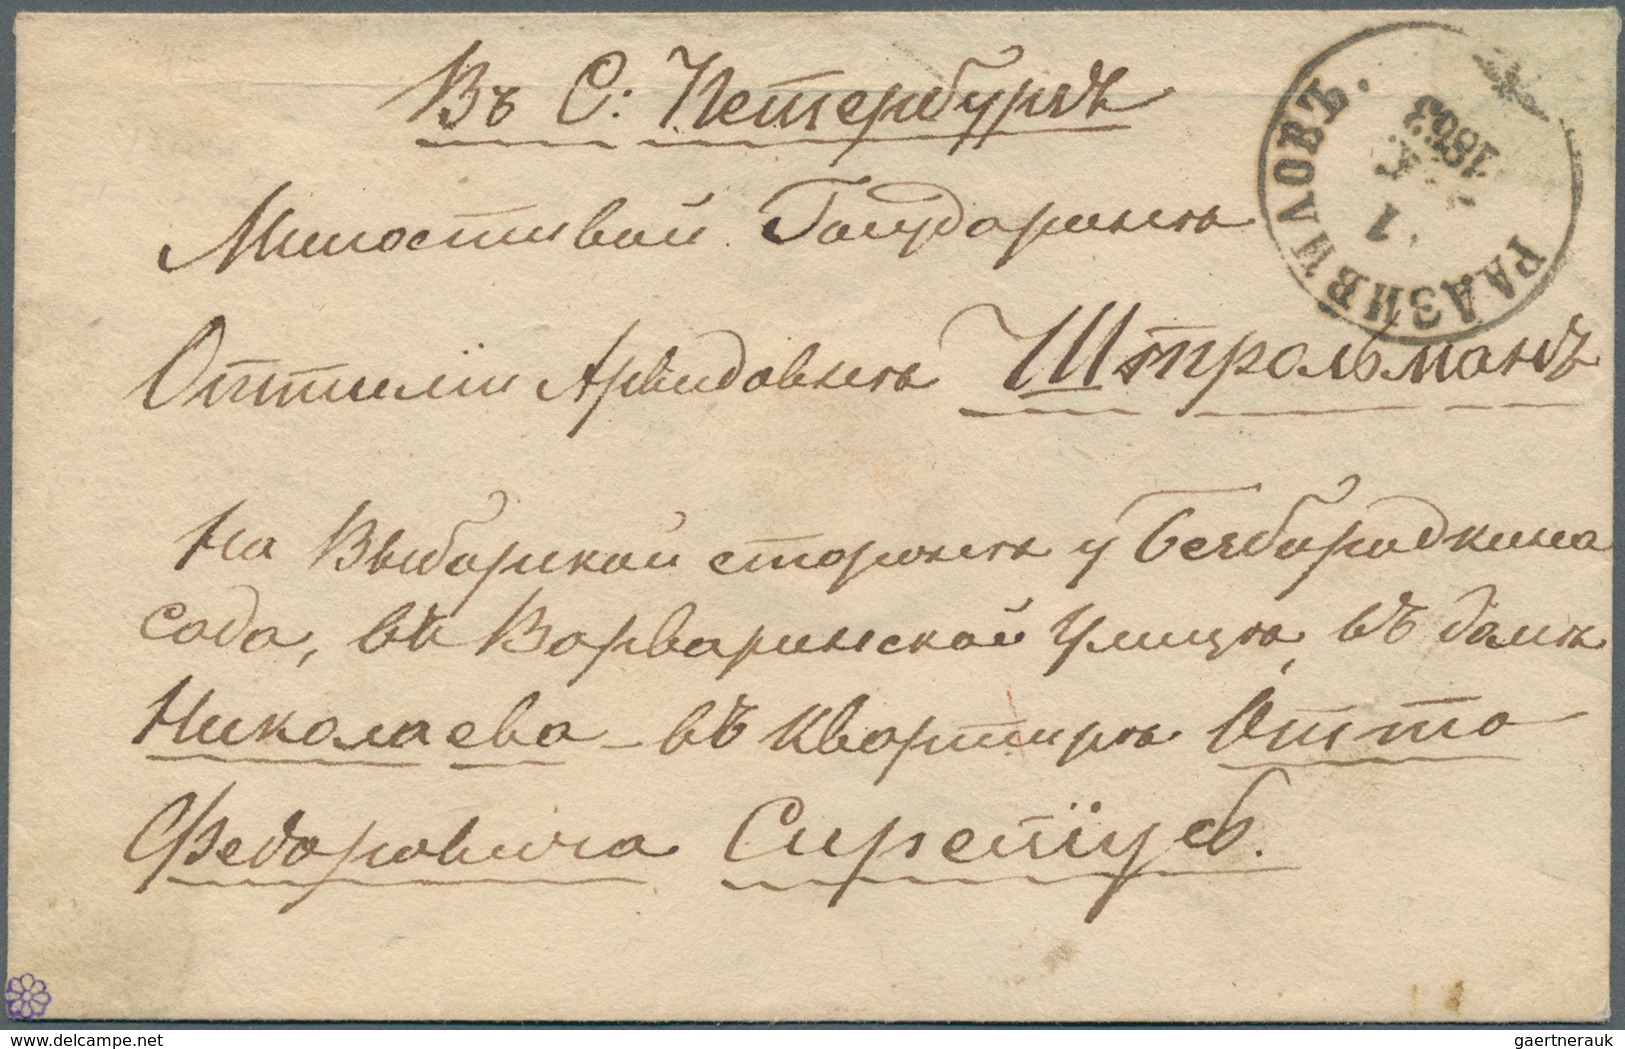 Въ С: Петербургъ
Милостивой Государынѣ
Оттиліи Арвидовнѣ Штрольманъ
На Выборгской сторонѣ у Безбородкина
сада, въ Варваринской Улицѣ, въ домѣ
Николаева – въ квартирѣ Отто
Федоровича
РАДЗИВИЛОВЪ.
1
1863
delcampe.net
gaertnerauk